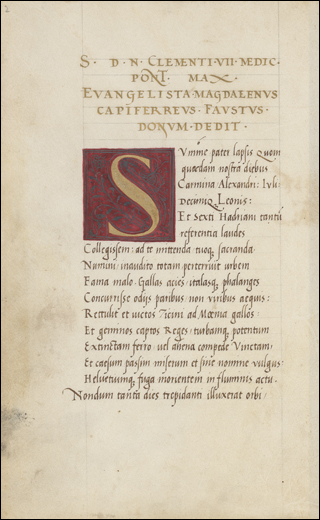 S. D. N. CLEMENTI. VII. MEDIC.
PONT. MAX.
EVANGELISTA. MAGDALENUS
CAPIFERREUS. FAUSTUS.
DONUM. DEDIT.
Summe pater lapsis quom
quaedam nostra diebus
Carmina Alexandri: Iuli
Decimiq Leonis:
Et Sexti Hadriani tantũ
referentia laudes
Collegissem: ad te mittenda tuoq; sacranda
Numini: inaudito totam perterruit urbem
Fama malo: Gallas acies, italasq; phalanges
Concurrisse odijs paribus non viribus aequis:
Rettulit et victos Ticini ad Moenia gallos:
Et geminos captos Reges: turbamq; potentum
Extinctam ferro: vel ahena compede Vinctam:
Et caesum passim miserum et sine nomine vulgus:
Helvetiumq; fuga morientem in fluminis actu.
Nondum tanta dies trepidanti illuxerat orbi: